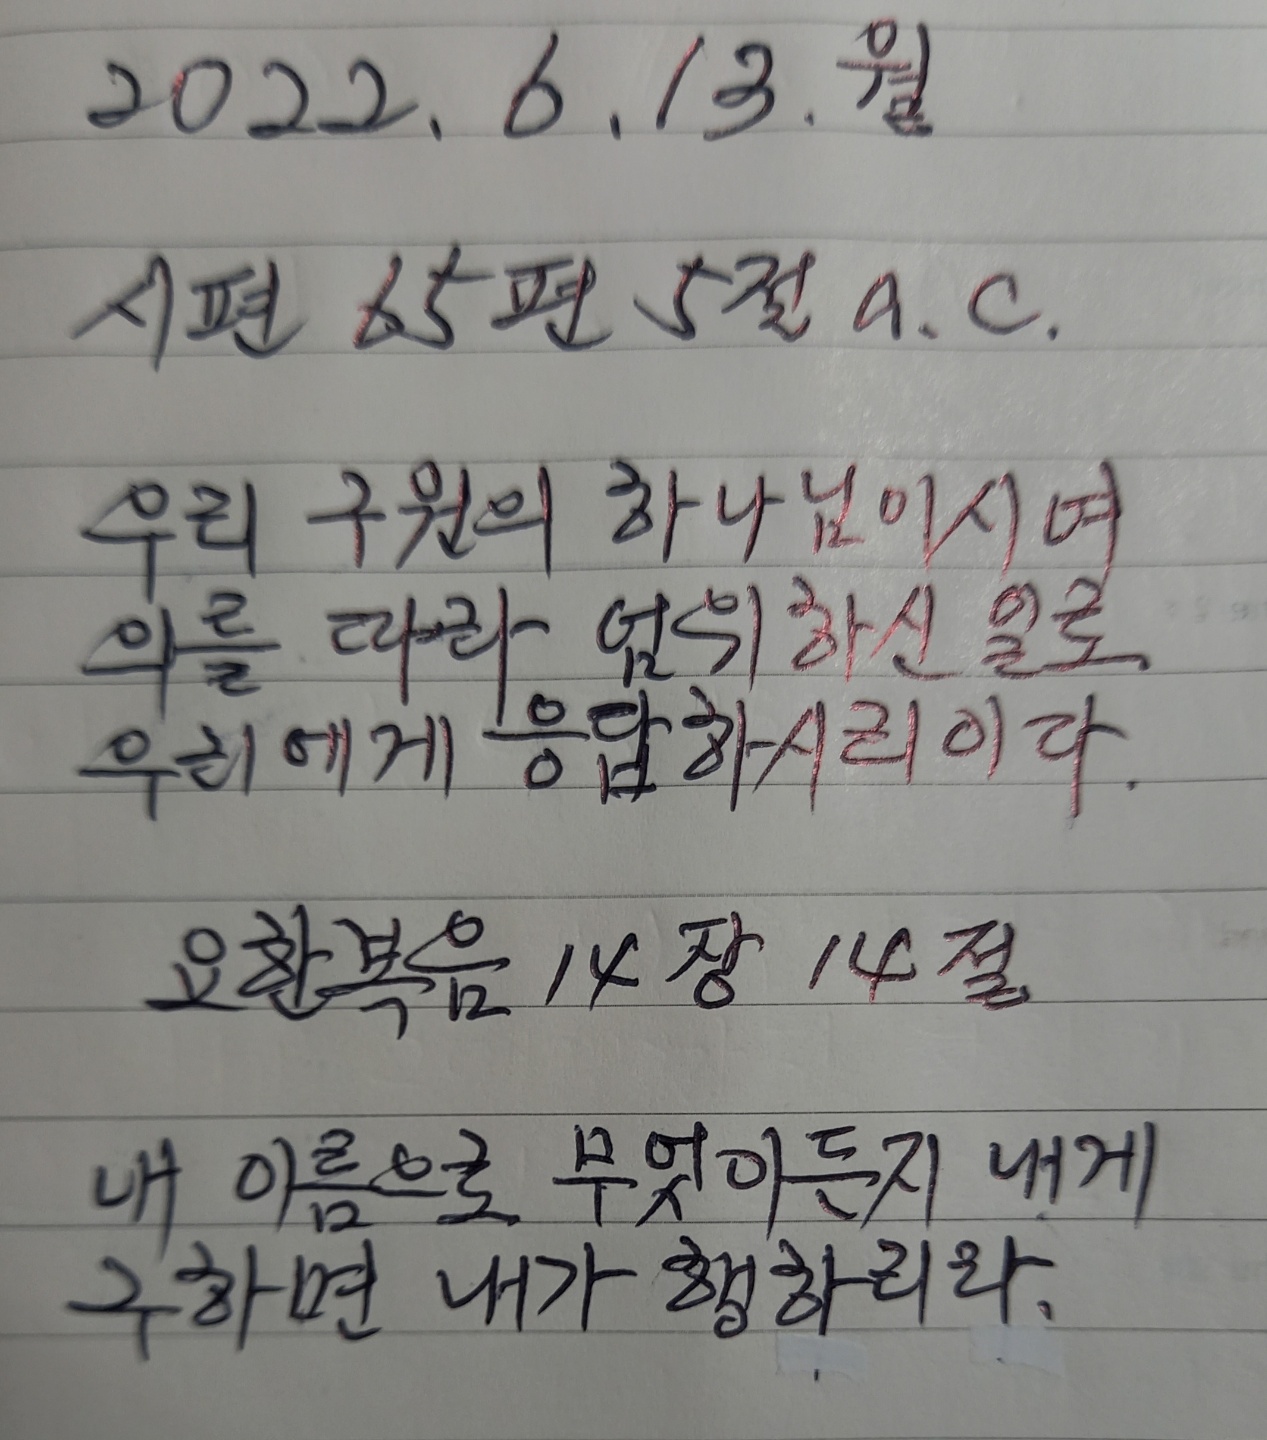 2022. 6. 13. 월
시편 65편 5절 a. c.
우리 구원의 하나님이시여
의를 따라 엄위하신 일로
우리에게 응답하시리이다.
요한복음 14장 14절
내 이름으로 무엇이든지 내게
구하면 내가 행하리라.